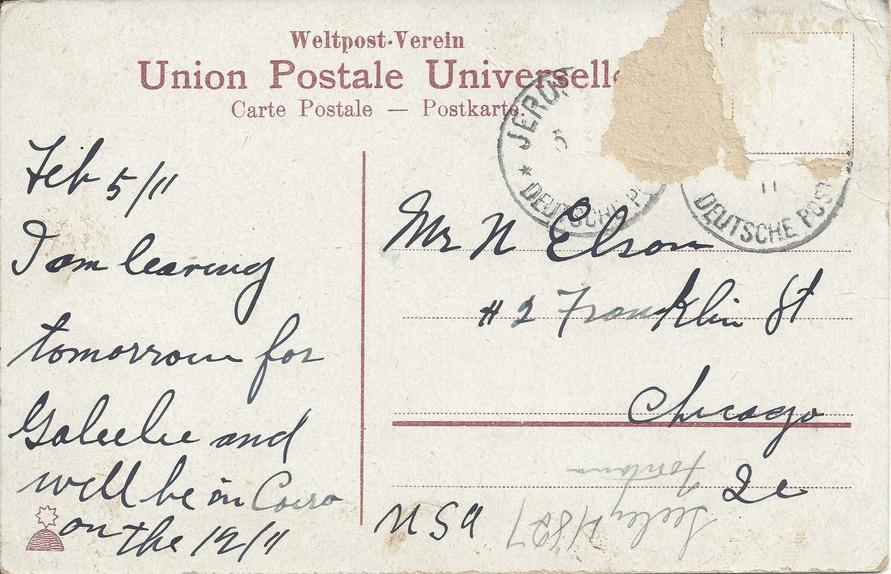 Weltpost-Verein
Union Postale Universelle
Carte Postale — Postkarte
JERUS
* DEUTSCHE P
11
DEUTSCHE POST
Feb 5/11
I am leaving
tomorrow for
Galeelee and
will be in Cairo
on the 19/11
Mr N Elson
# 2 Franklin St
Chicago
Ill
USA